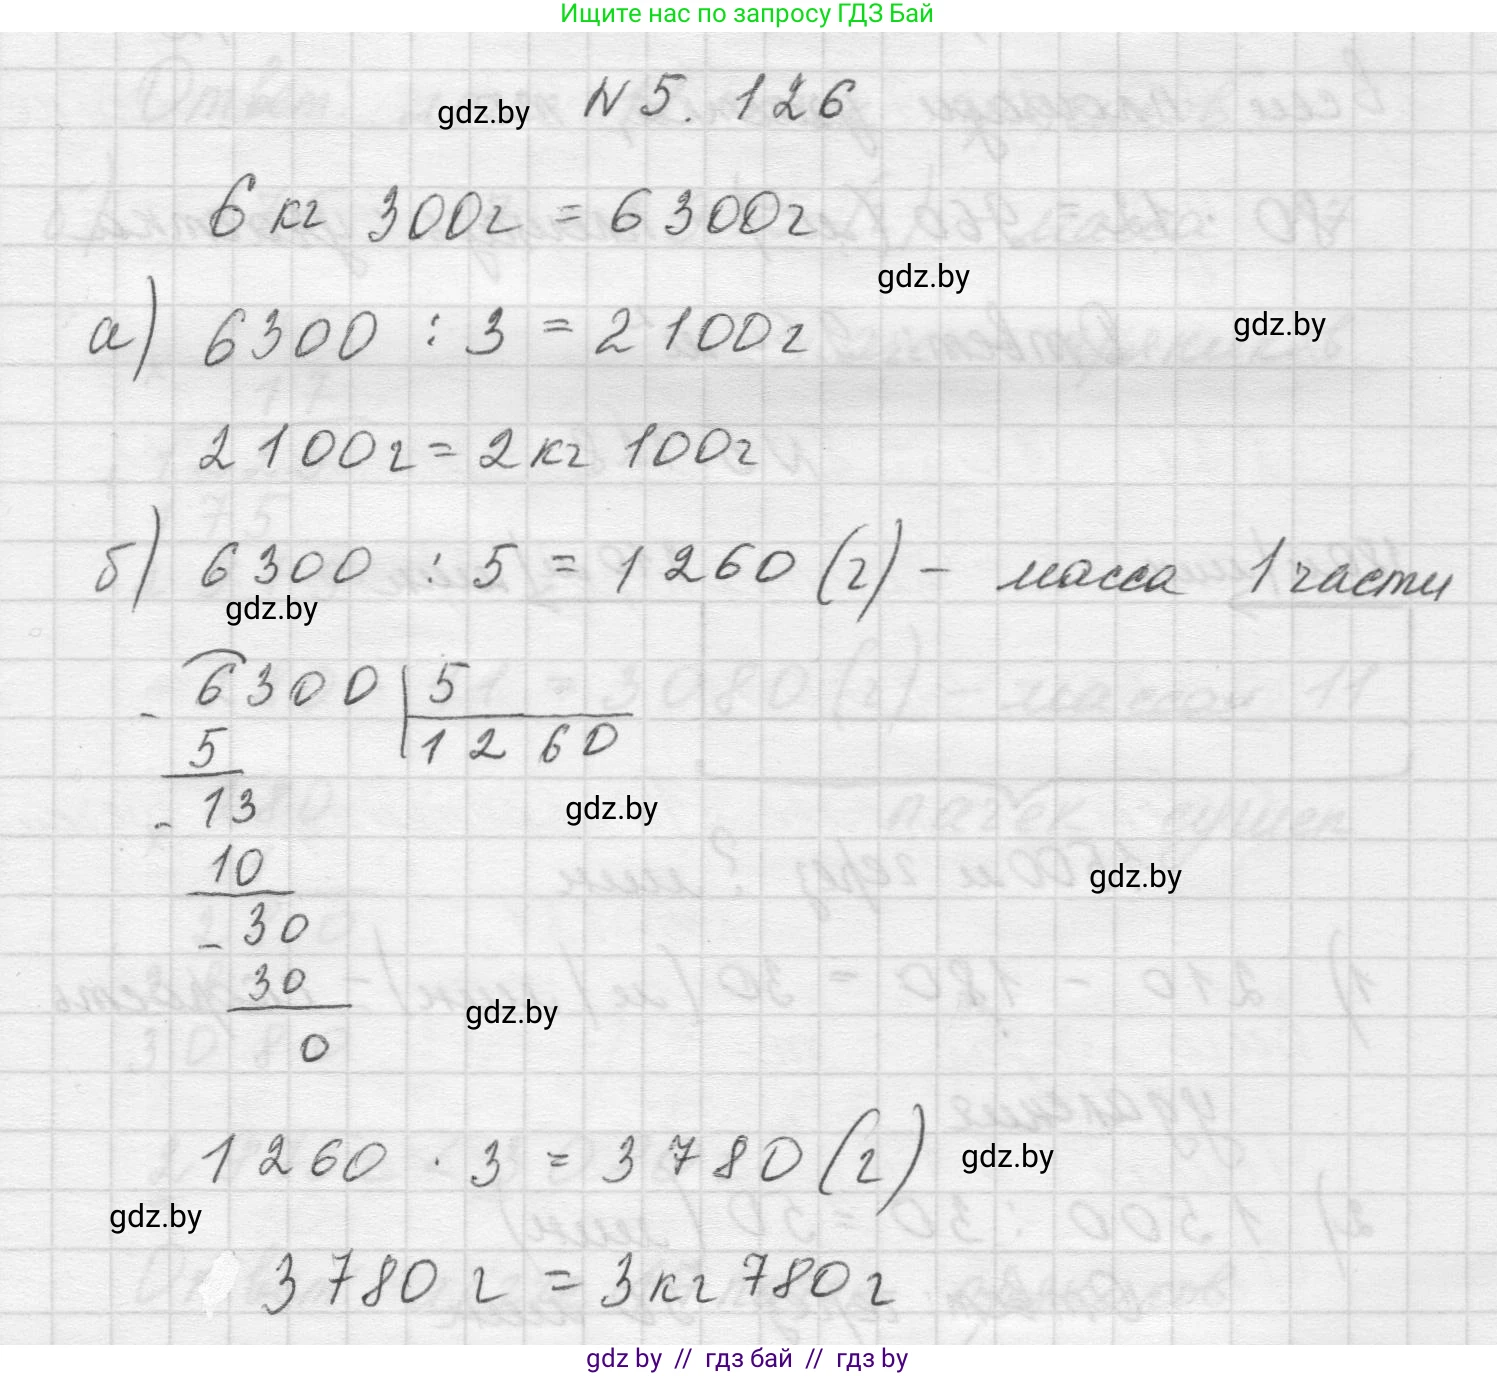 Ищите нас по запросу ГДЗ Бай
gdz.by N 5. 126
6 кг 300г = 6300г
gdz.by
а) 6300 : 3 = 2100г
gdz.by
2100г = 2кг 100г
б) 6300 : 5 = 1260 (г) - масса 1 части
gdz.by
- 6300 | 5
5 1260
- 13
gdz.by
10
gdz.by
- 30
30
gdz.by
0
1260 · 3 = 3780 (г)
gdz.by
gdz.by
3780 г = 3кг 780г
gdz by // гдз бай // гдз by